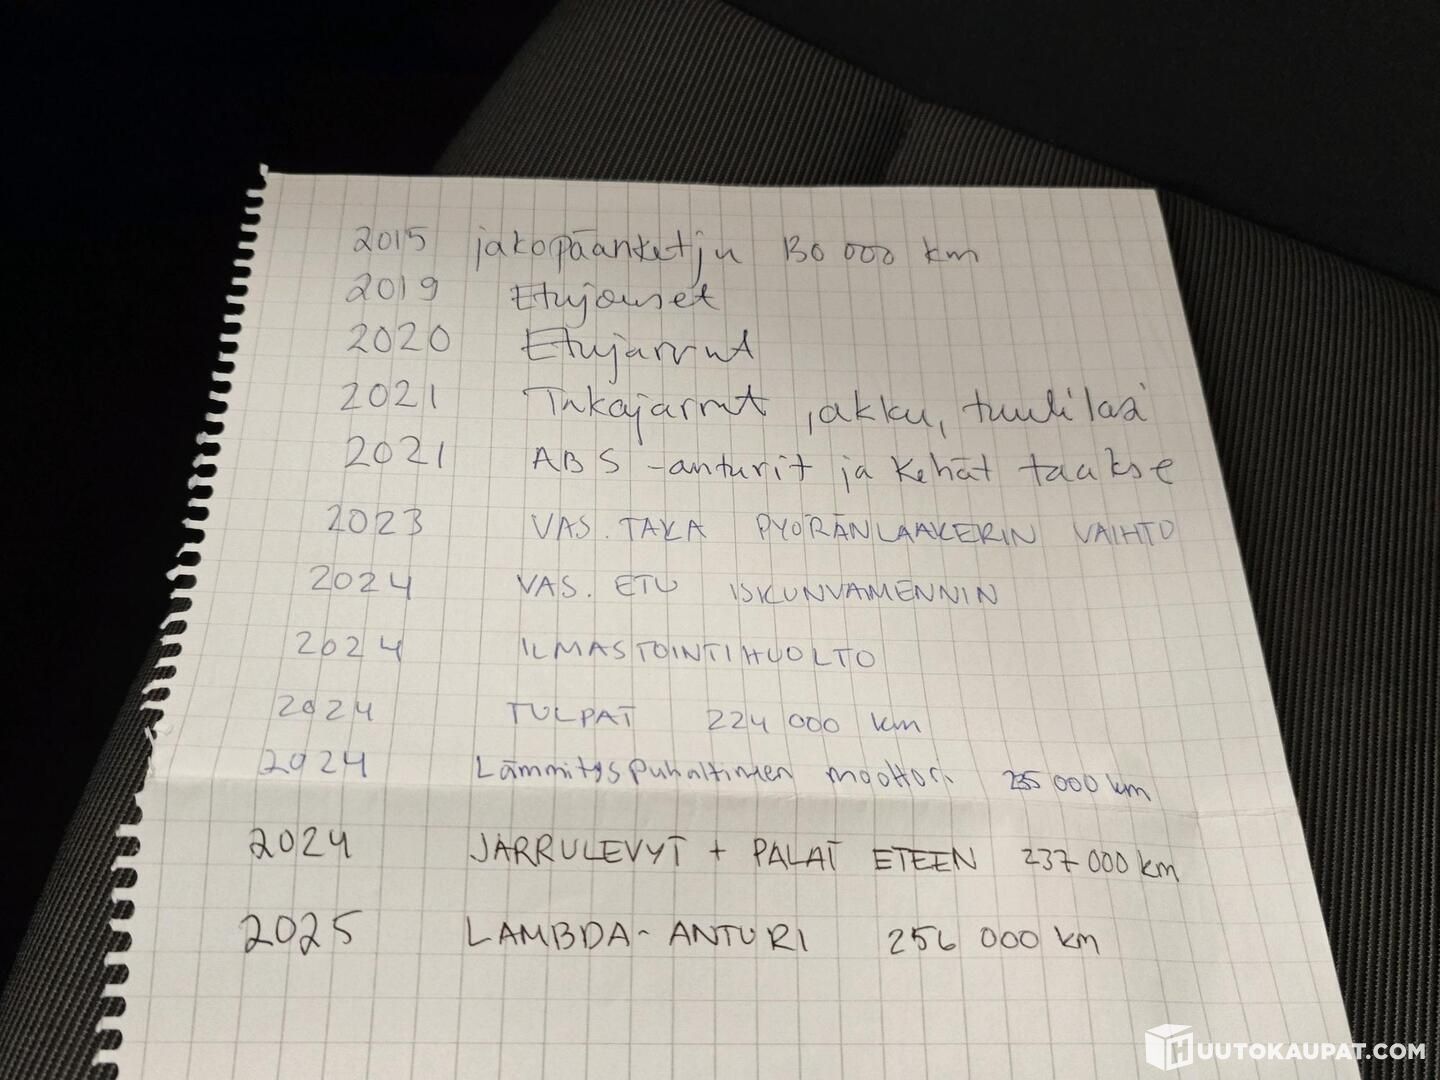 2015 jakopäänketju 130 000 km
2019 Etujouset
2020 Etujarrut
2021 Takajarrut, akku, tuulilasi
2021 ABS -anturit ja kehät taakse
2023 VAS. TAKA PYÖRÄNLAAKERIN VAIHTO
2024 VAS. ETU ISKUNVAIMENNIN
2024 ILMASTOINTIHUOLTO
2024 TULPAT 224 000 km
2024 Lämmityspuhaltimen moottori 235 000 km
2024 JARRULEVYT + PALAT ETEEN 237 000 km
2025 LAMBDA-ANTURI 256 000 km
HUUTOKAUPAT.COM